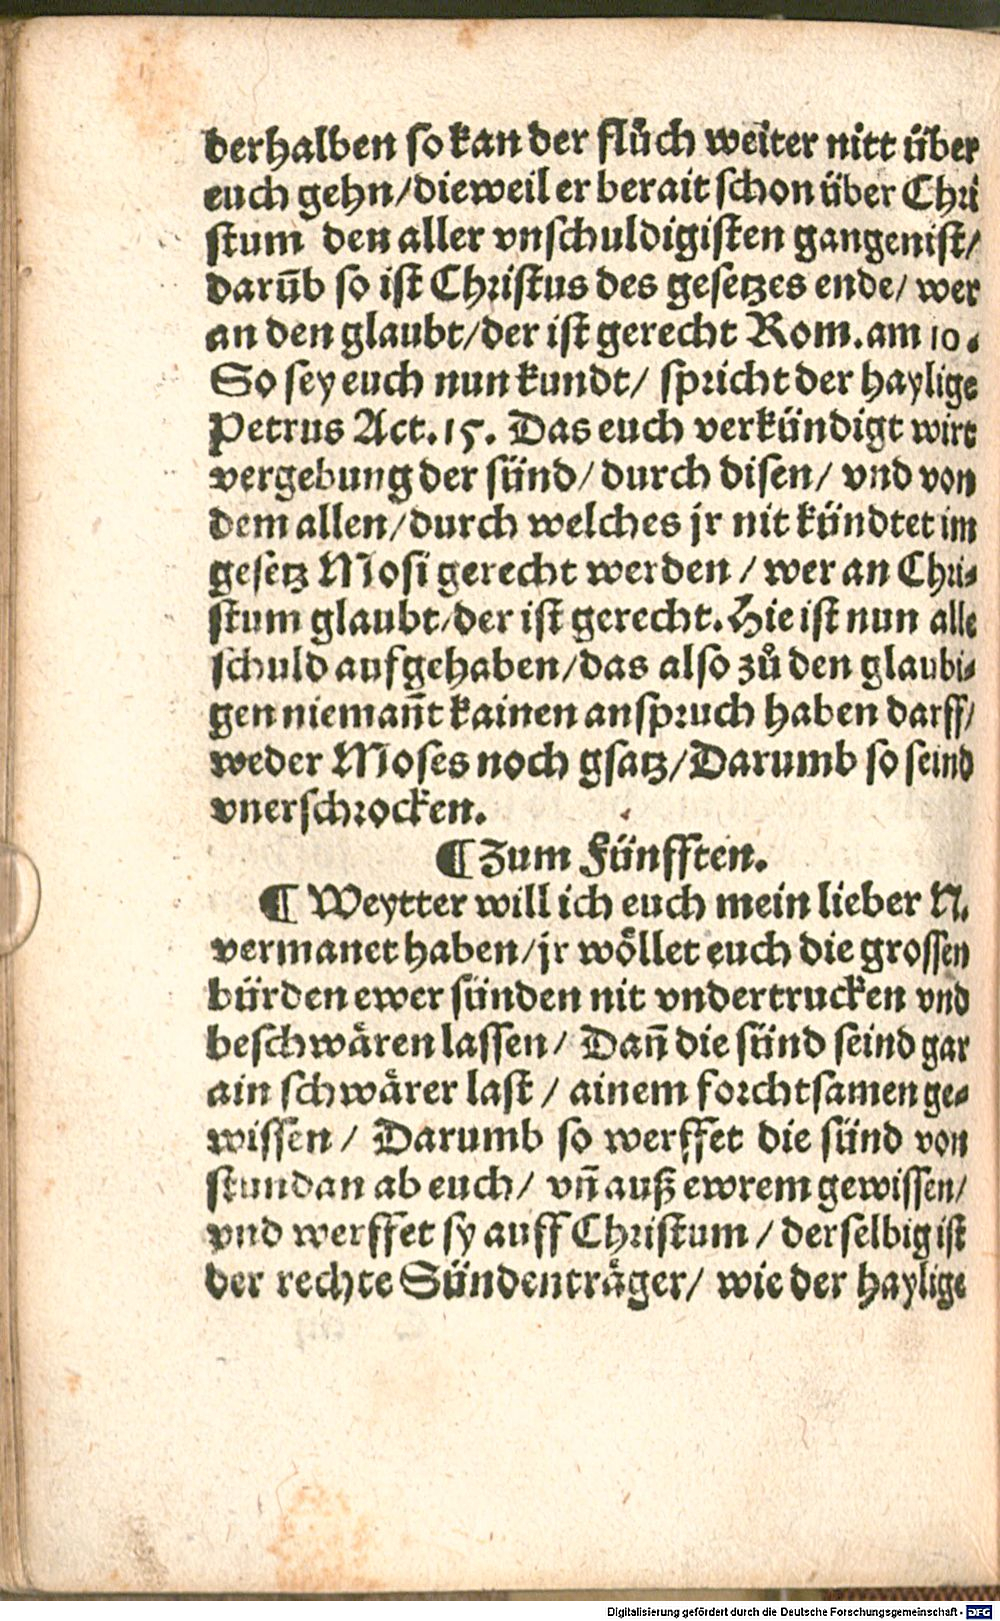 derhalben so kan der flůch weiter nitt über
euch gehn/dieweil er berait schon über Chri
stum den aller vnschuldigisten gangen ist/
darũb so ist Christus des gesetzes ende/ wer
an den glaubt/der ist gerecht Rom.am 10.
So sey euch nun kundt/ spricht der haylige
Petrus Act.15. Das euch verkündigt wirt
vergebung der sünd/durch disen/ vnd von
dem allen/durch welches jr nit kündtet im
gesetz Mosi gerecht werden/wer an Chri-
stum glaubt/der ist gerecht.Hie ist nun alle
schuld aufgehaben/das also zů den glaubi-
gen niemañt kainen anspruch haben darff/
weder Moses noch gsatz/Darumb so seind
vnerschrocken.
¶ Zum Fünfften.
¶ Weytter will ich euch mein lieber N.
vermanet haben/jr wöllet euch die grossen
bürden ewer sünden nit vndertrucken vnd
beschwären lassen/ Dañ die sünd seind gar
ain schwärer last/ainem forchtsamen ge-
wissen/ Darumb so werffet die sünd von
stundan ab euch/ vñ auß ewrem gewissen/
vnd werffet sy auff Christum/derselbig ist
der rechte Sündenträger/ wie der haylige
Digitalisierung gefördert durch die Deutsche Forschungsgemeinschaft - DFG